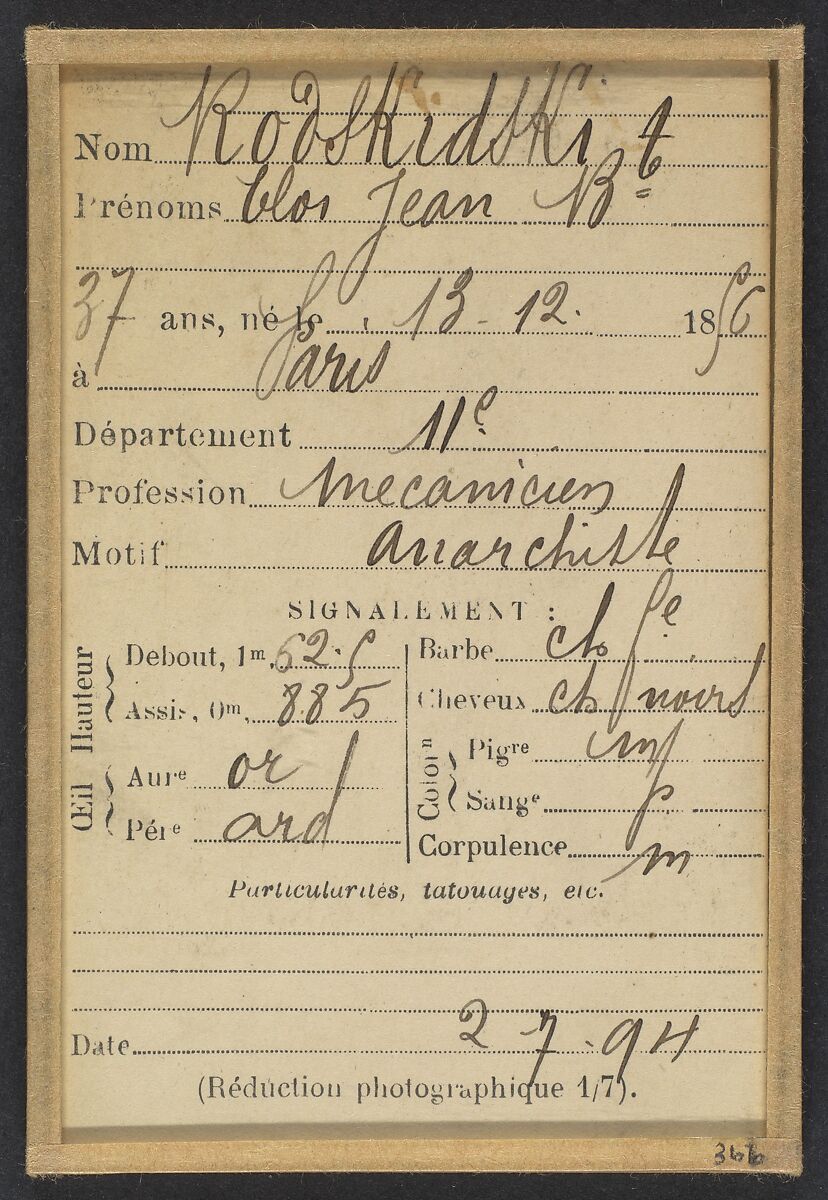 Nom Rodskidski
Prénoms Clos Jean Bte
37 ans, né le 13-12. 1856
à Paris
Département 11e
Profession mecanicien
Motif anarchiste
SIGNALEMENT :
Hauteur
Debout, 1m, 62.5
Assis, 0m, 885
Œil
Aure or
Pére ard
Barbe ch fe
Cheveux ch noirs
Colorn
Pigre m
Sange p
Corpulence m
Particularités, tatouages, etc.
Date 2-7-94
(Réduction photographique 1/7).
366